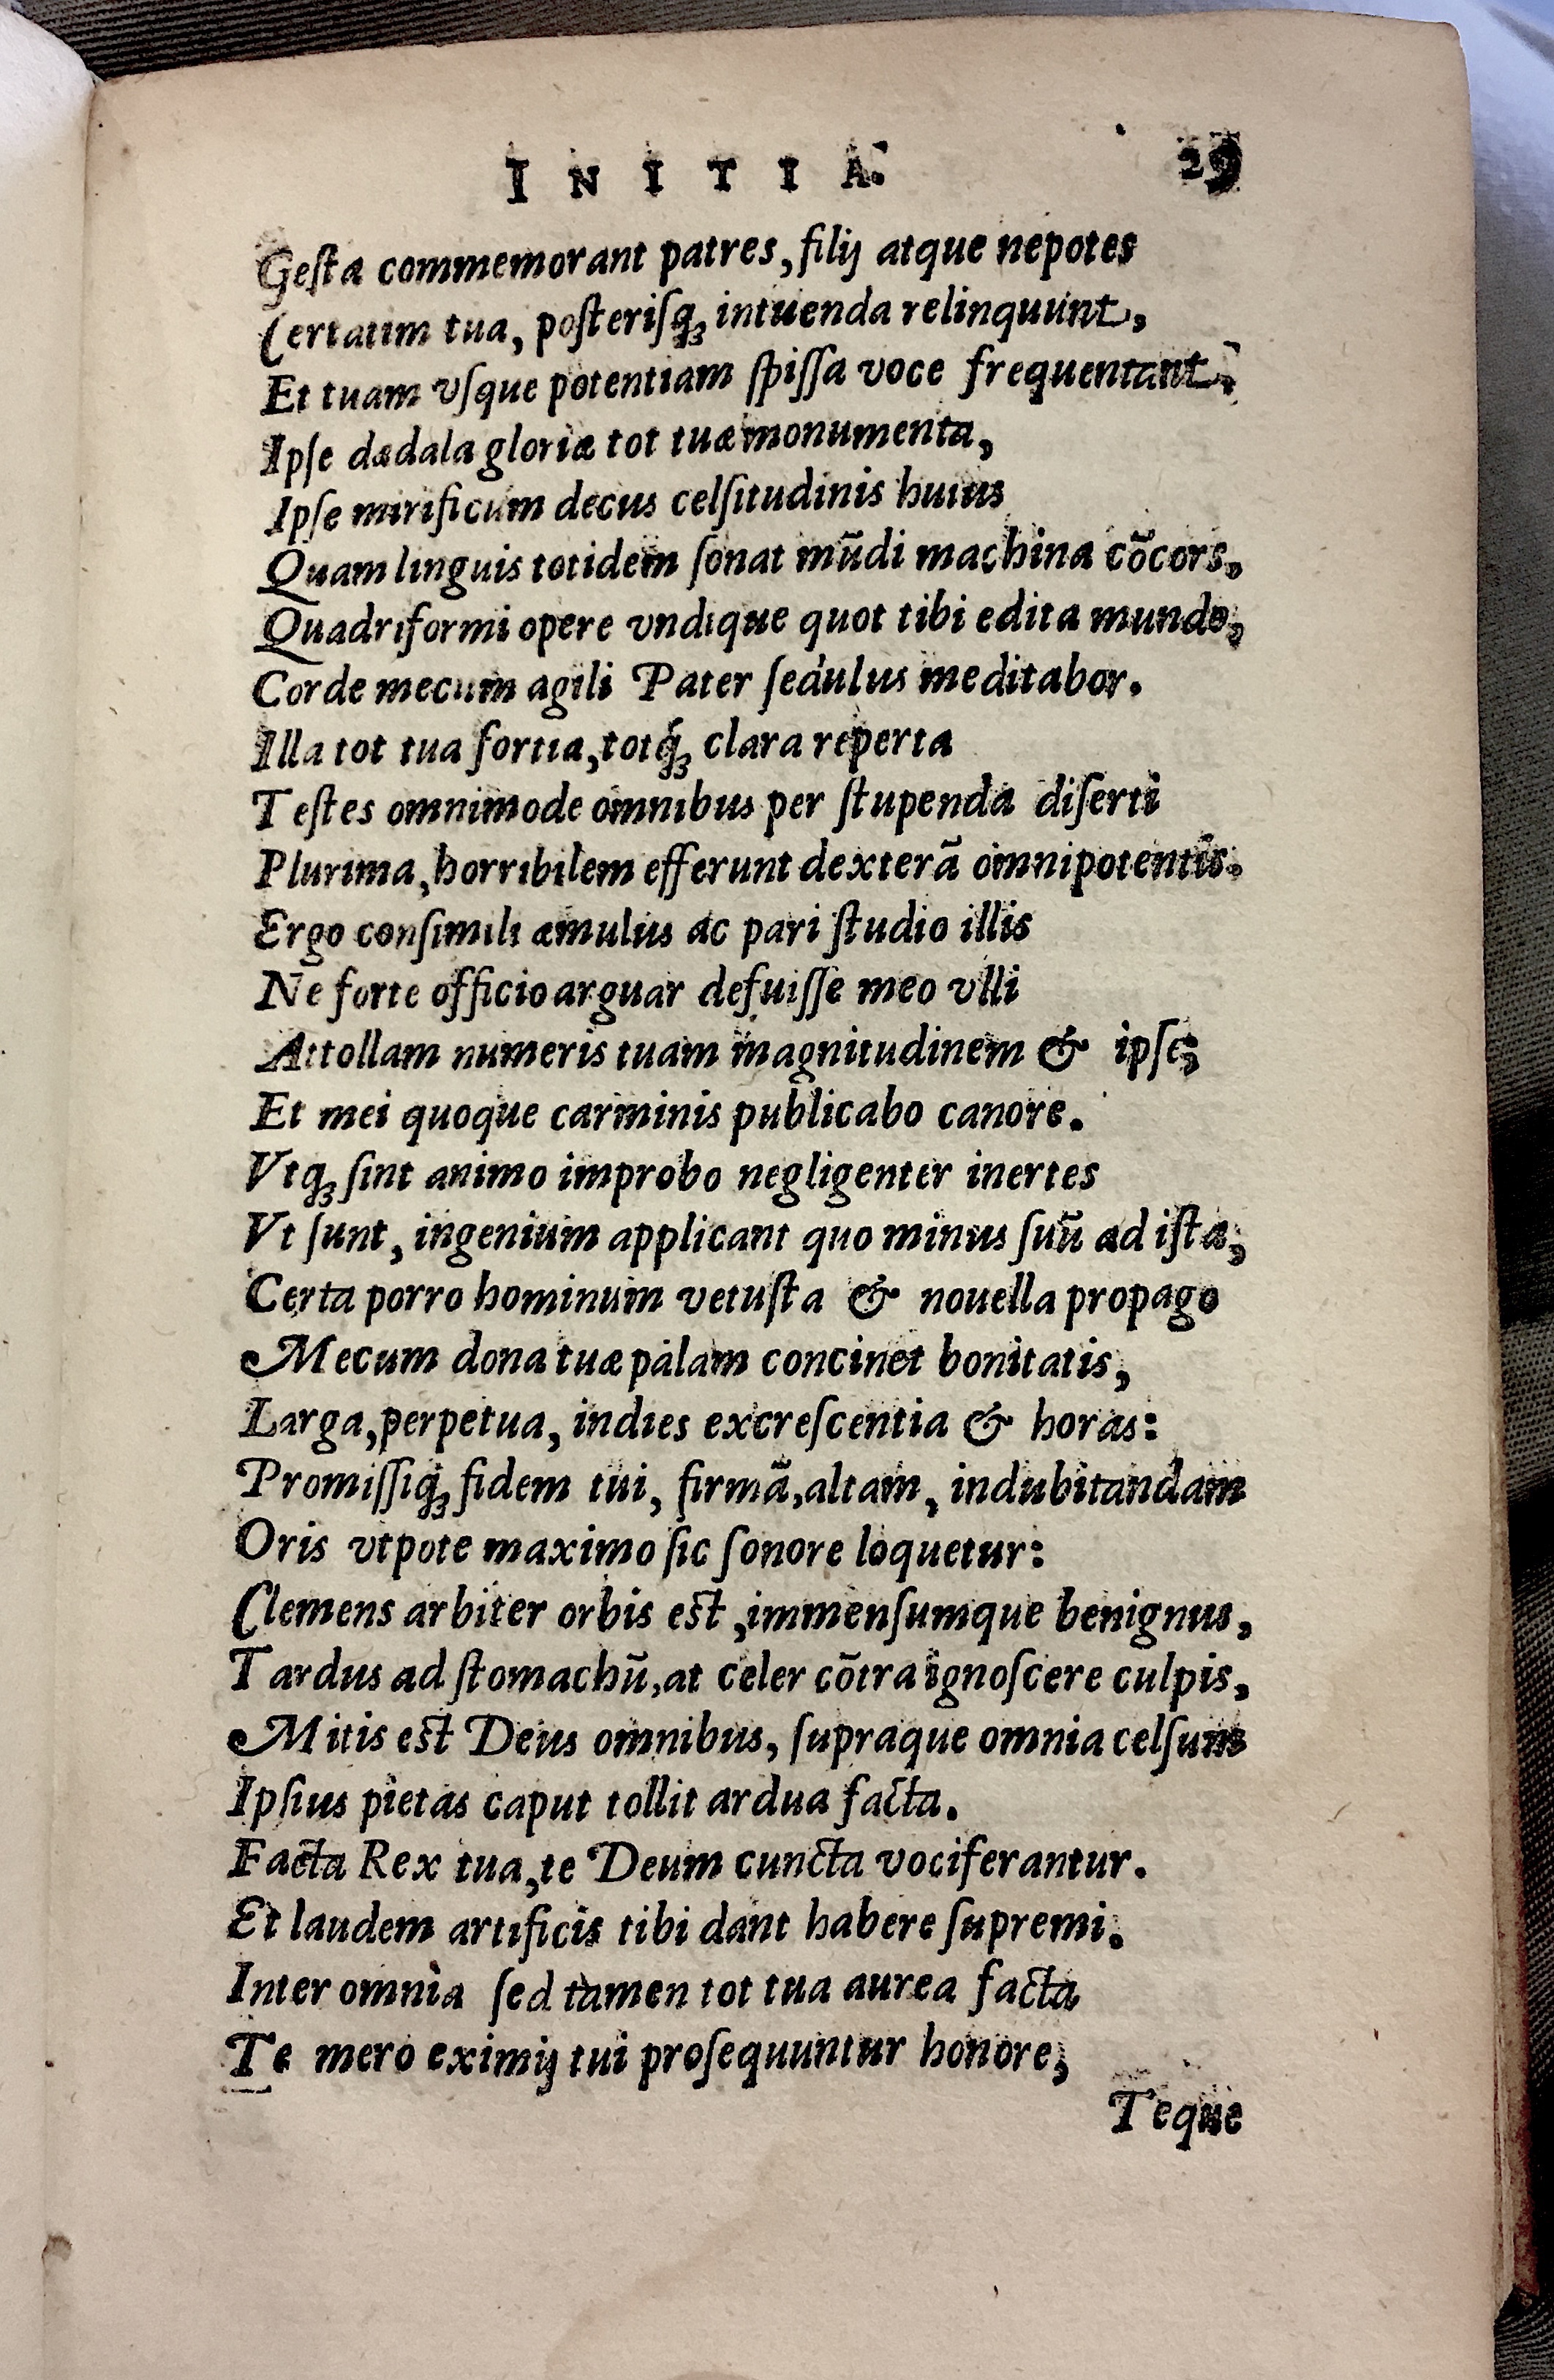 INITIA. 29
Geſta commemorant patres, filij atque nepotes
Certatim tua, poſteriſq́ꝫ intuenda relinquunt,
Et tuam vſque potentiam ſpiſſa voce frequentant.
Ipſe dædala gloriæ tot tuæ monumenta,
Ipſe mirificum decus celſitudinis huius
Quam linguis totidem ſonat mũdi machina cõcors,
Quadriformi opere vndique quot tibi edita mundo,
Corde mecum agili Pater ſedulus meditabor.
Illa tot tua fortia, totq́ꝫ clara reperta
Teſtes omnimode omnibus per ſtupenda diſerti
Plurima, horribilem efferunt dexterã omnipotentis.
Ergo conſimili æmulus ac pari ſtudio illis
Ne forte officio arguar defuiſſe meo vlli
Attollam numeris tuam magnitudinem & ipſe,
Et mei quoque carminis publicabo canore.
Vtqꝫ ſint animo improbo negligenter inertes
Vt ſunt, ingenium applicant quo minus ſuũ ad iſta,
Certa porro hominum vetuſta & nouella propago
Mecum dona tuæ palam concinet bonitatis,
Larga, perpetua, indies excreſcentia & horas:
Promiſſiq́ꝫ fidem tui, firmã, altam, indubitandam
Oris vtpote maximo ſic ſonore loquetur:
Clemens arbiter orbis eſt, immenſumque benignus,
Tardus ad ſtomachũ, at celer cõtra ignoſcere culpis,
Mitis eſt Deus omnibus, ſupraque omnia celſum
Ipſius pietas caput tollit ardua facta.
Facta Rex tua, te Deum cuncta vociferantur.
Et laudem artificis tibi dant habere ſupremi.
Inter omnia ſed tamen tot tua aurea facta
Te mero eximij tui proſequuntur honore,
Teque